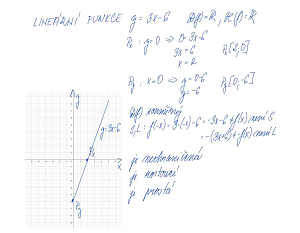 LINEÁRNÍ FUNKCE y = 3x-6 D(f)=R, H(f)=R
Px : y=0 => 0=3x-6
3x=6
x=2
Px[2,0]
Py : x=0 => y=0-6
y=-6
Py[0,-6]
D(f) souměrný
S,L: f(-x) = 3·(-x)-6 = -3x-6 ≠ f(x) není S
= -(3x+6) ≠ -f(x) není L
je neohraničená
je rostoucí
je prostá
y
y=3x-6
Px
x
Py